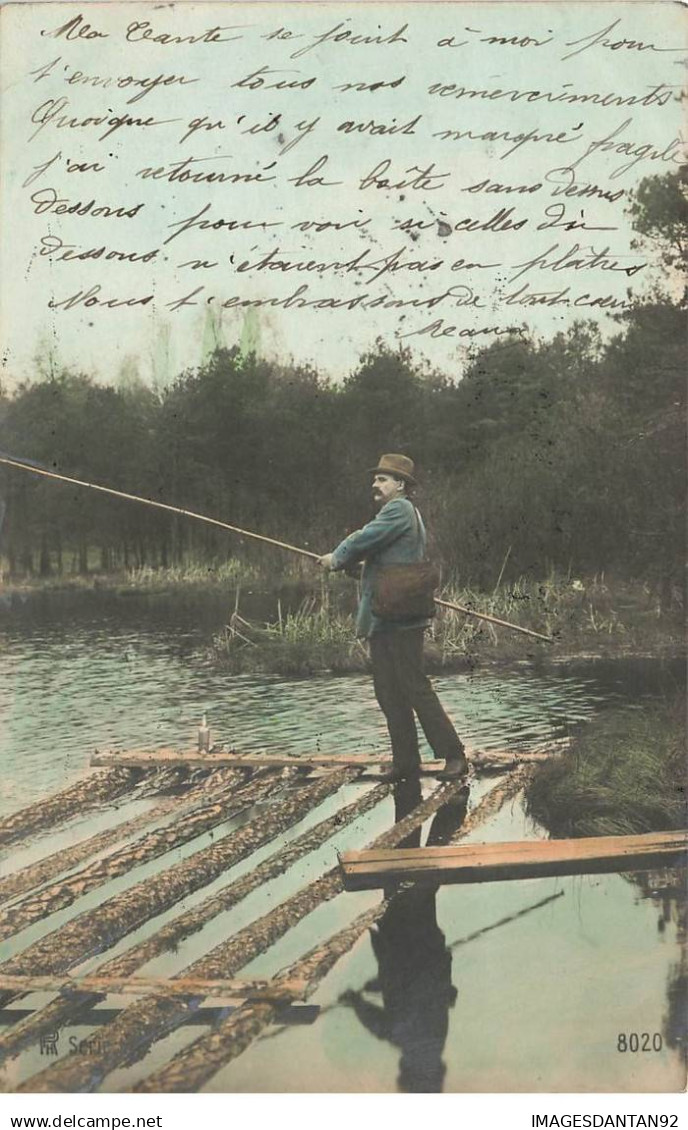 Ma Tante se joint à moi pour
t'envoyer tous nos remerciments
Quoique qu'il y avait marqué fragile
j'ai retourné la boîte sans dessus
dessous pour voir si celles du
dessous n'étaient pas en plâtre
Nous t'embrassons de tout cœur
Seri
8020
IMAGESDANTAN92